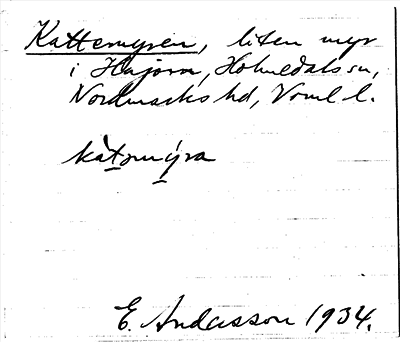 Kattemyren, liten myr
i Häjorn, Holmedals sn,
Nordmarks hd, Vrml l.
kàtmýra
E. Andersson 1934.